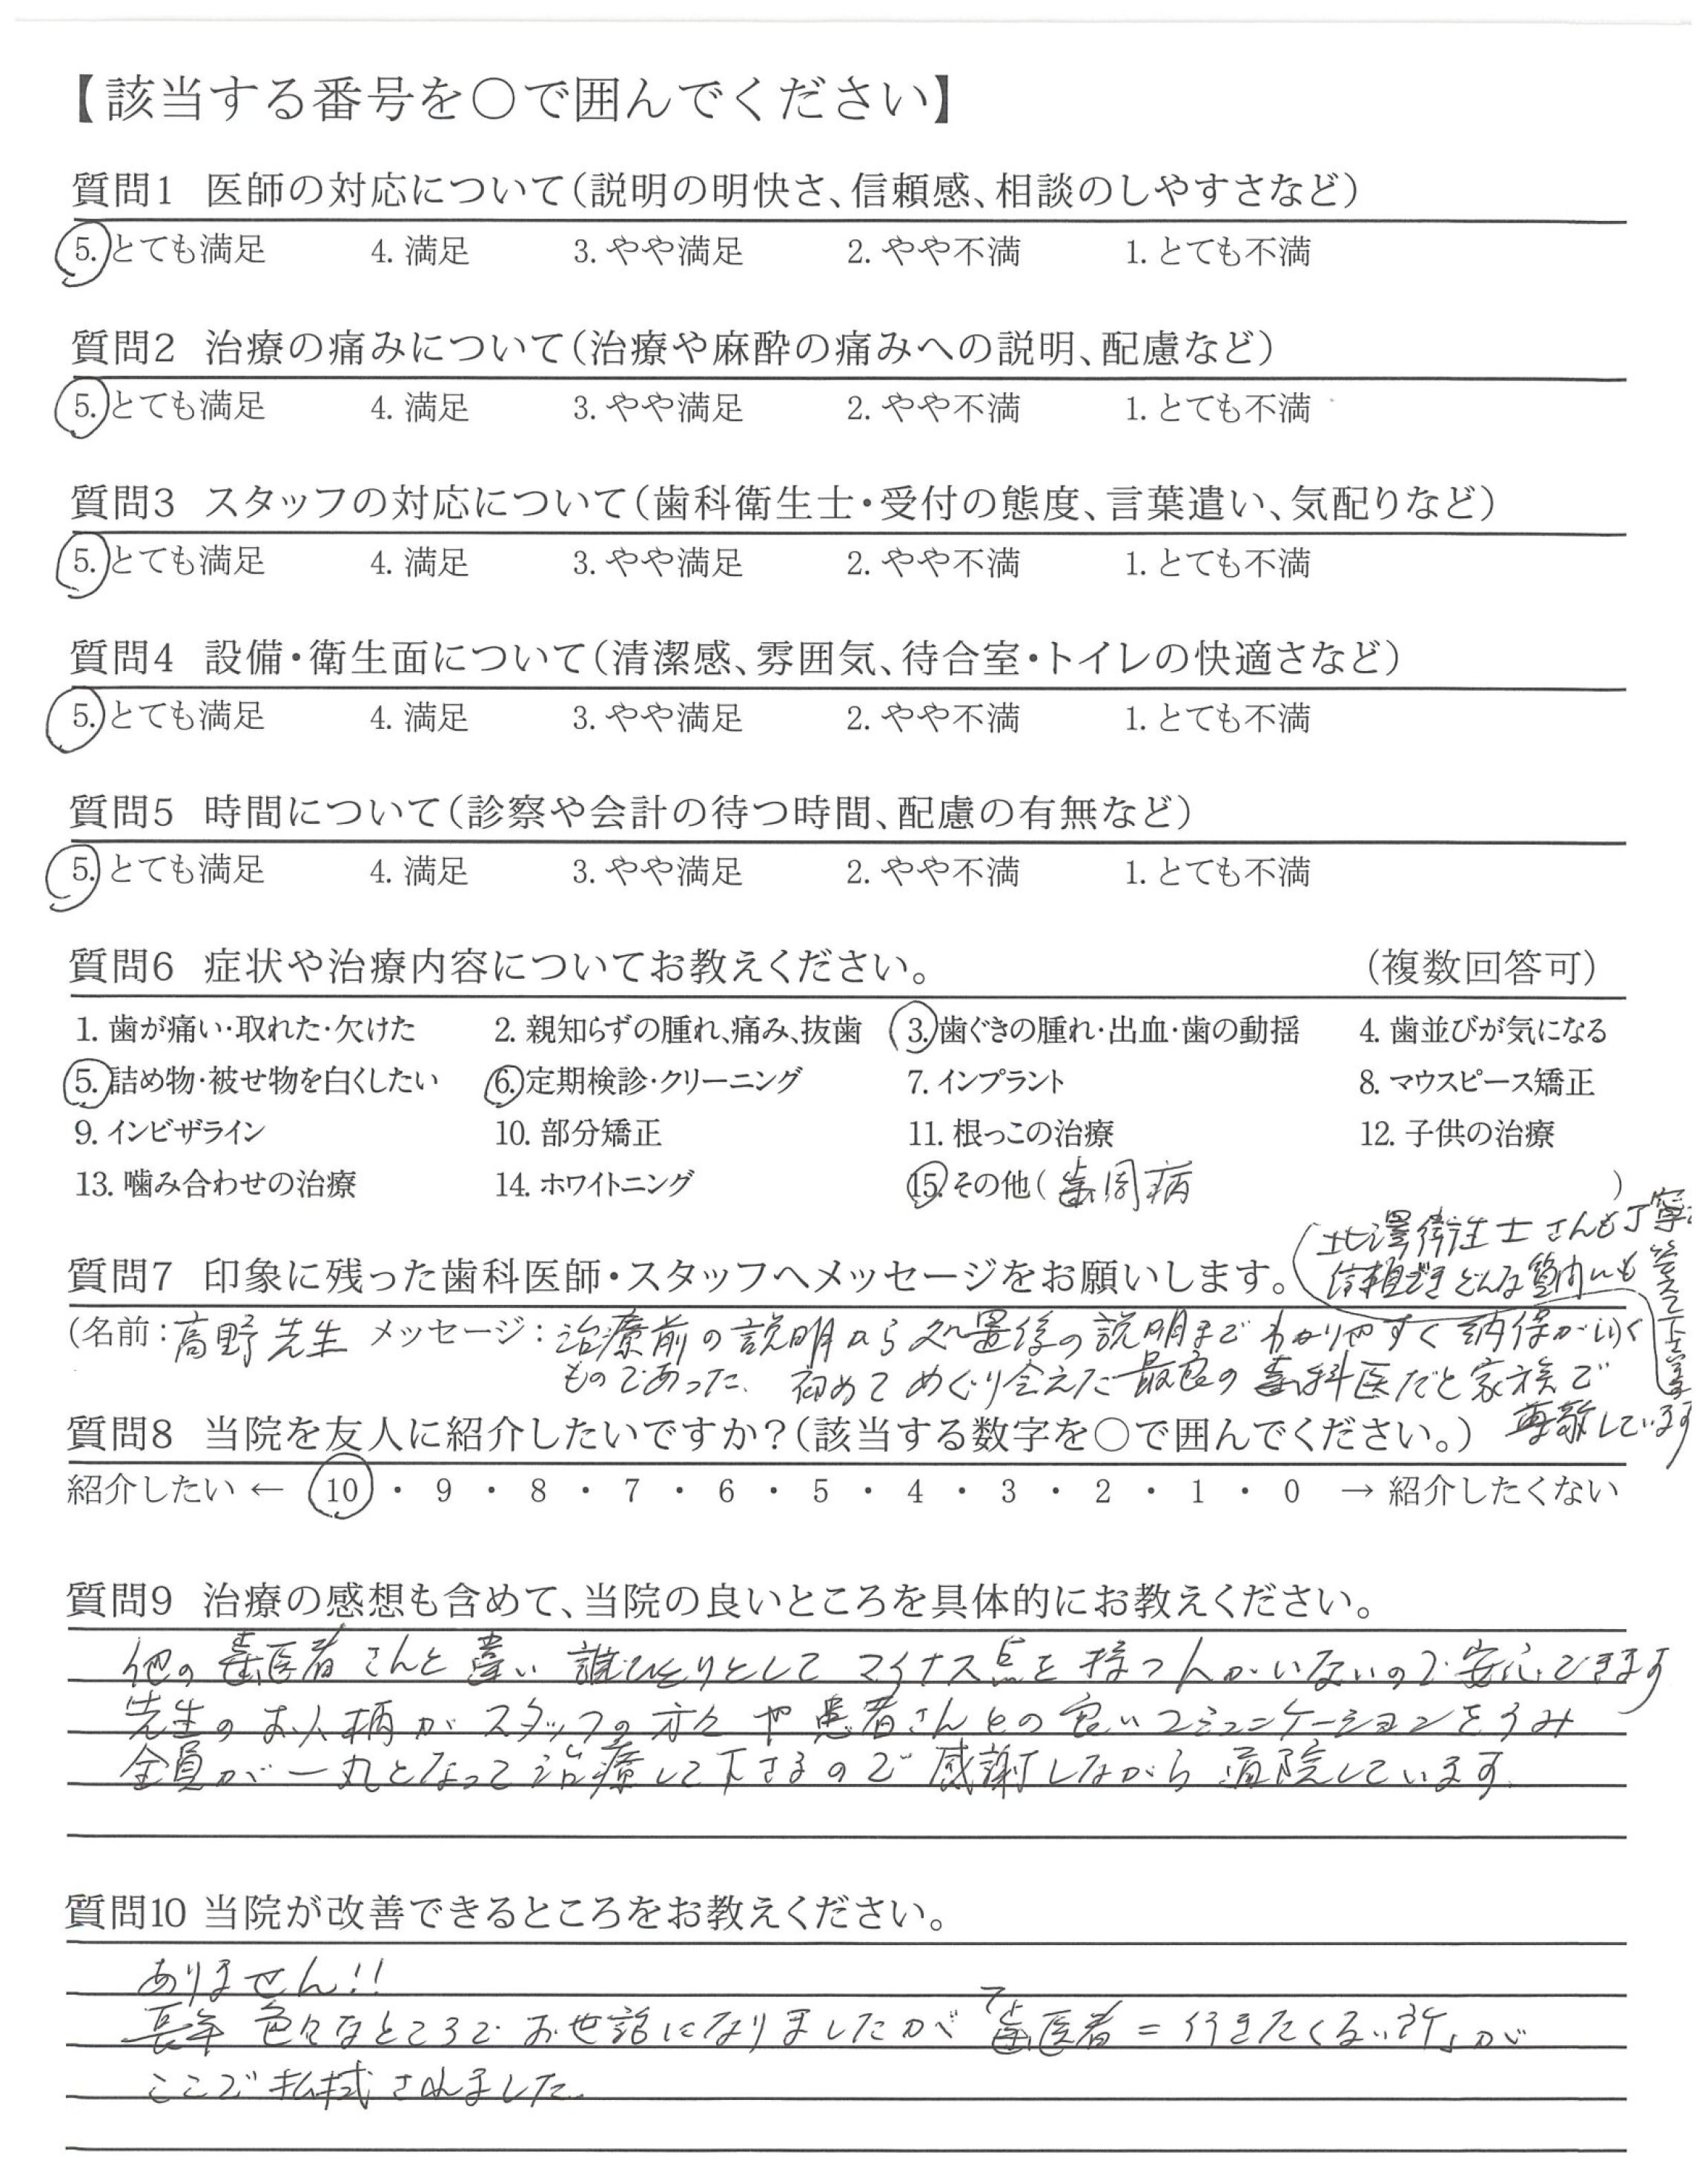 【該当する番号を○で囲んでください】
質問1 医師の対応について（説明の明快さ、信頼感、相談のしやすさなど）
5. とても満足 4. 満足 3. やや満足 2. やや不満 1. とても不満
質問2 治療の痛みについて（治療や麻酔の痛みへの説明、配慮など）
5. とても満足 4. 満足 3. やや満足 2. やや不満 1. とても不満
質問3 スタッフの対応について（歯科衛生士・受付の態度、言葉遣い、気配りなど）
5. とても満足 4. 満足 3. やや満足 2. やや不満 1. とても不満
質問4 設備・衛生面について（清潔感、雰囲気、待合室・トイレの快適さなど）
5. とても満足 4. 満足 3. やや満足 2. やや不満 1. とても不満
質問5 時間について（診察や会計の待つ時間、配慮の有無など）
5. とても満足 4. 満足 3. やや満足 2. やや不満 1. とても不満
質問6 症状や治療内容についてお教えください。 （複数回答可）
1. 歯が痛い・取れた・欠けた 2. 親知らずの腫れ、痛み、抜歯 3. 歯ぐきの腫れ・出血・歯の動揺 4. 歯並びが気になる
5. 詰め物・被せ物を白くしたい 6. 定期検診・クリーニング 7. インプラント 8. マウスピース矯正
9. インビザライン 10. 部分矯正 11. 根っこの治療 12. 子供の治療
13. 噛み合わせの治療 14. ホワイトニング 15. その他（歯周病）
質問7 印象に残った歯科医師・スタッフへメッセージをお願いします。
（北澤衛生士さんも丁寧
信頼でき どんな質問にも
答えて下さる
（名前：高野先生 メッセージ：治療前の説明から処置後の説明まで わかりやすく 納得がいく
ものであった。初めてめぐり会えた最良の歯科医だと家族で
尊敬しています
質問8 当院を友人に紹介したいですか？（該当する数字を○で囲んでください。）
紹介したい ← 10 ・ 9 ・ 8 ・ 7 ・ 6 ・ 5 ・ 4 ・ 3 ・ 2 ・ 1 ・ 0 → 紹介したくない
質問9 治療の感想も含めて、当院の良いところを具体的にお教えください。
他の歯医者さんと違い 誰ひとりとして マイナス点を 持つ人がいないので 安心できます
先生の お人柄が スタッフの方々 や 患者さんとの 良いコミュニケーションをうみ
全員が一丸となって治療して下さるので 感謝しながら 通院しています。
質問10 当院が改善できるところをお教えください。
ありません!!
長年 色々なところで お世話になりましたが 「歯医者＝行きたくない所」が
ここで 払拭されました。